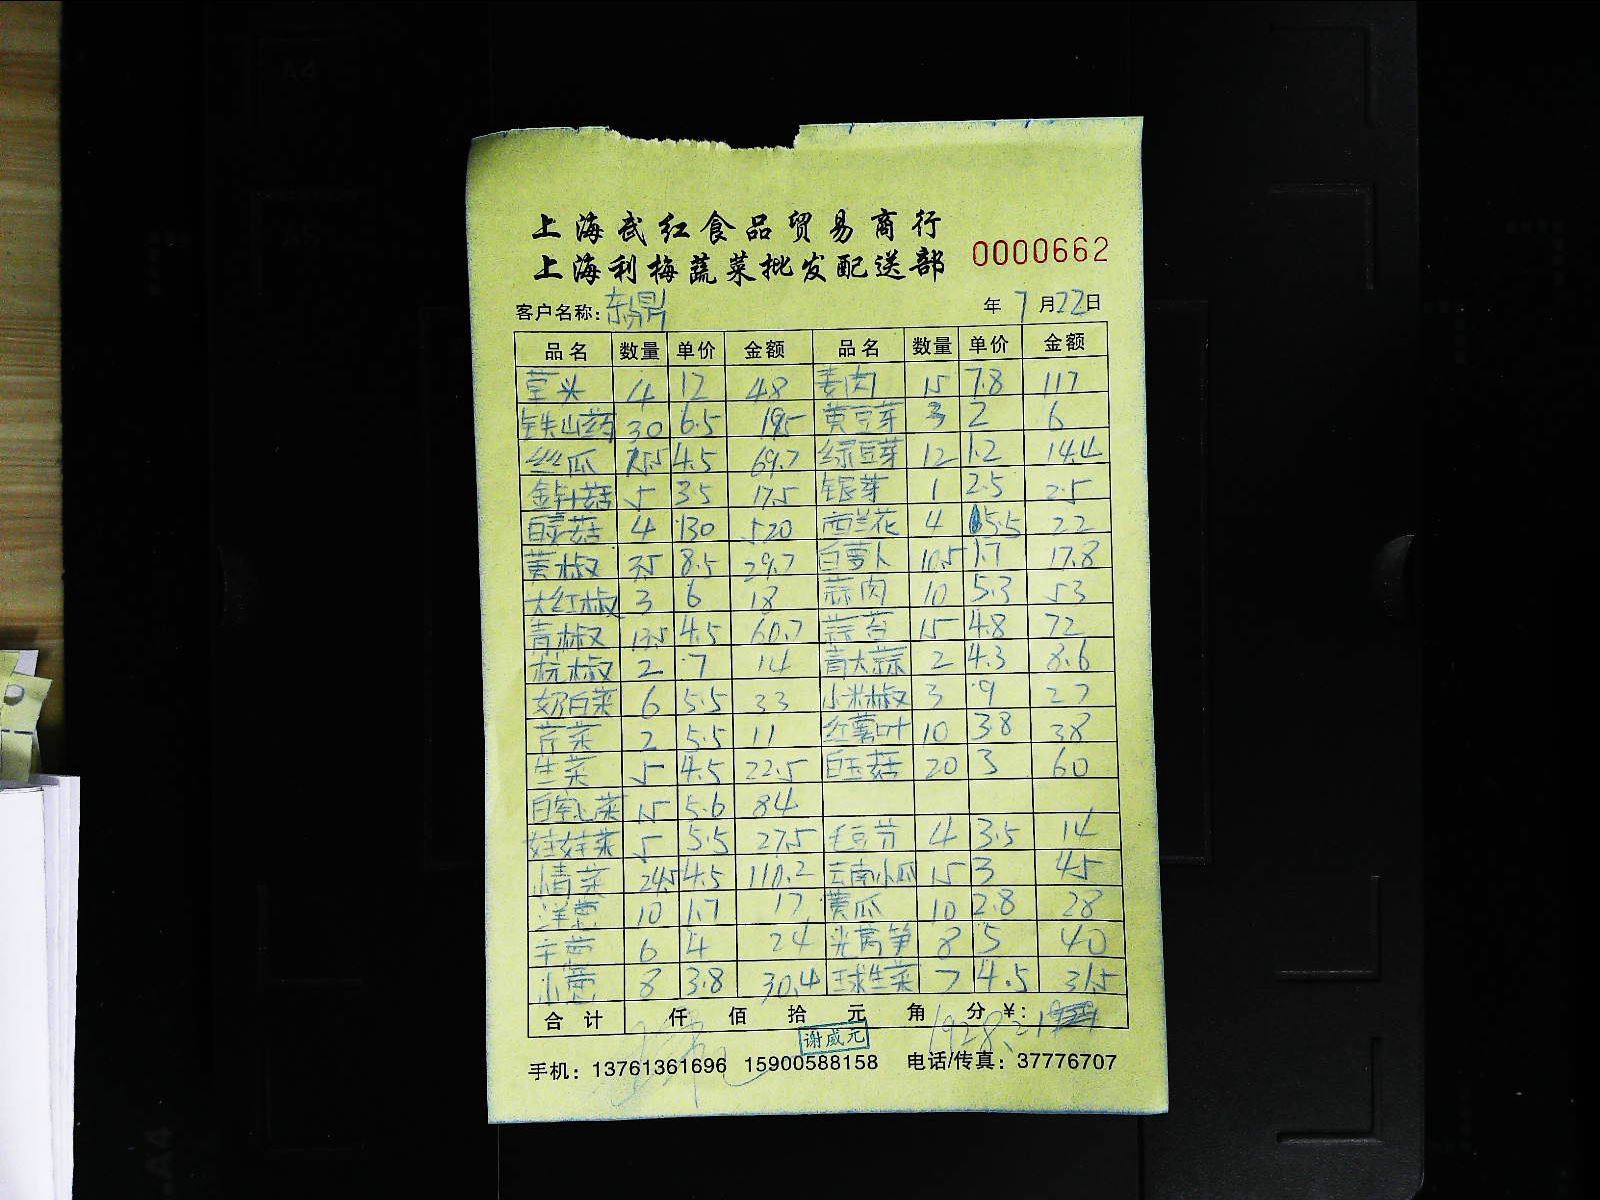 上海武红食品贸易商行
上海利梅蔬菜批发配送部
0000662
客户名称: 东鼎 年 7 月 22 日
品名 数量 单价 金额 品名 数量 单价 金额
草头 4 12 48 姜肉 15 7.8 117
铁山药 30 6.5 195 黄豆芽 3 2 6
丝瓜 15.5 4.5 69.7 绿豆芽 12 1.2 14.4
金针菇 5 3.5 17.5 银芽 1 2.5 2.5
白灵菇 4 130 520 西兰花 4 5.5 22
黄椒 3.5 8.5 29.7 白萝卜 10.5 1.7 17.8
大红椒 3 6 18 蒜肉 10 5.3 53
青椒 13.5 4.5 60.7 蒜苔 15 4.8 72
杭椒 2 7 14 青大蒜 2 4.3 8.6
奶白菜 6 5.5 33 小米椒 3 9 27
芹菜 2 5.5 11 红薯叶 10 3.8 38
生菜 5 4.5 22.5 白玉菇 20 3 60
白空心菜 15 5.6 84
娃娃菜 5 5.5 27.5 毛豆节 4 3.5 14
小青菜 24.5 4.5 110.2 云南小瓜 15 3 45
洋葱 10 1.7 17 黄瓜 10 2.8 28
辛葱 6 4 24 光莴笋 8 5 40
小葱 8 3.8 30.4 球生菜 7 4.5 31.5
合计 仟 佰 拾 元 角 分 ¥: 1928.21
谢成元
手机: 13761361696 15900588158 电话/传真: 37776707